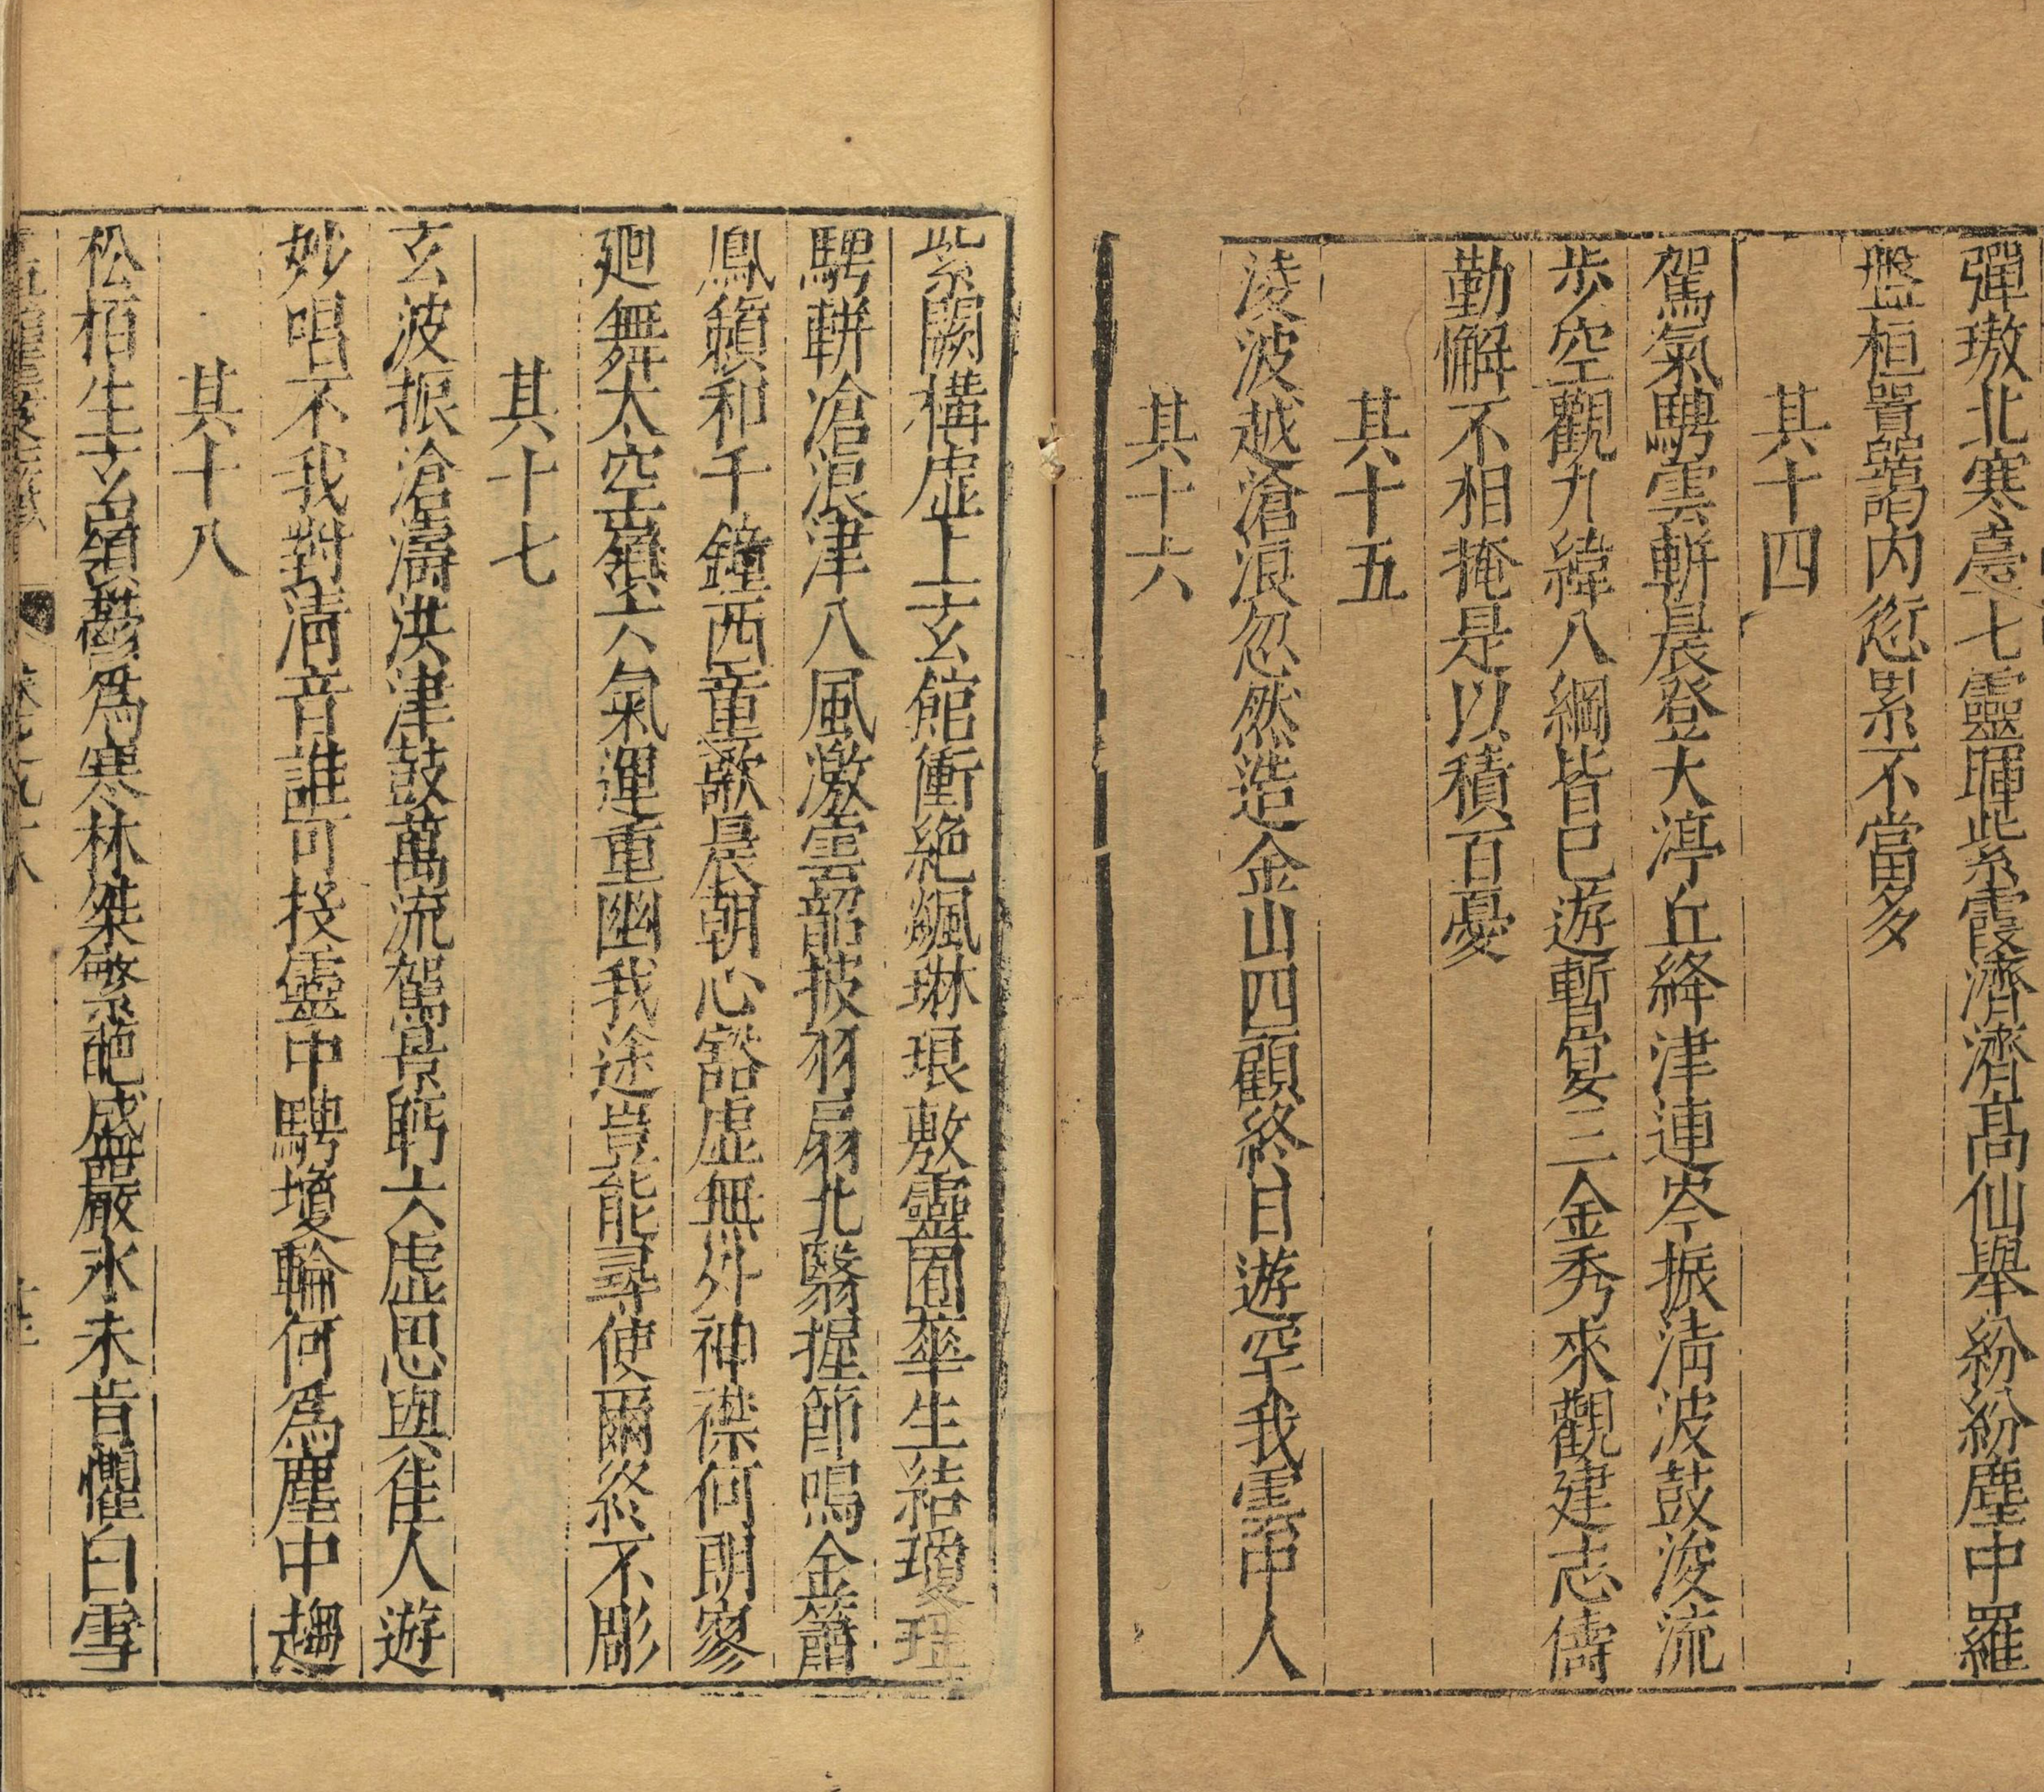 彈璈北寒臺七靈暉紫霞濟濟高仙舉紛紛塵中羅
盤桓囂藹內愆累不當多
其十四
駕氣騁雲軿晨登大渟丘絳津連岑振淸波鼓浚流
步空觀九緯八綱皆已遊暫宴三金秀來觀建志儔
勤懈不相掩是以積百憂
其十五
淩波越滄浪忽然造金山四顧終日遊罕我雲中人
其十六
紫闕構虛上玄館衝絕飇琳琅敷靈囿華生結瓊瑶
騁軿滄浪津八風激雲韶披羽扇北翳握節鳴金簫
鳳籟和千鐘西童歌晨朝心豁虛無外神襟何朗寥
廻舞太空嶺六氣運重幽我途豈能尋使爾終不彫
其十七
玄波振滄濤洪津鼓萬流駕景眄六虛思與佳人遊
妙唱不我對淸音誰可投靈中騁瓊輪何爲塵中趨
其十八
松栢生玄嶺鬱爲寒林桀繁葩盛嚴氷未肯懼白雪